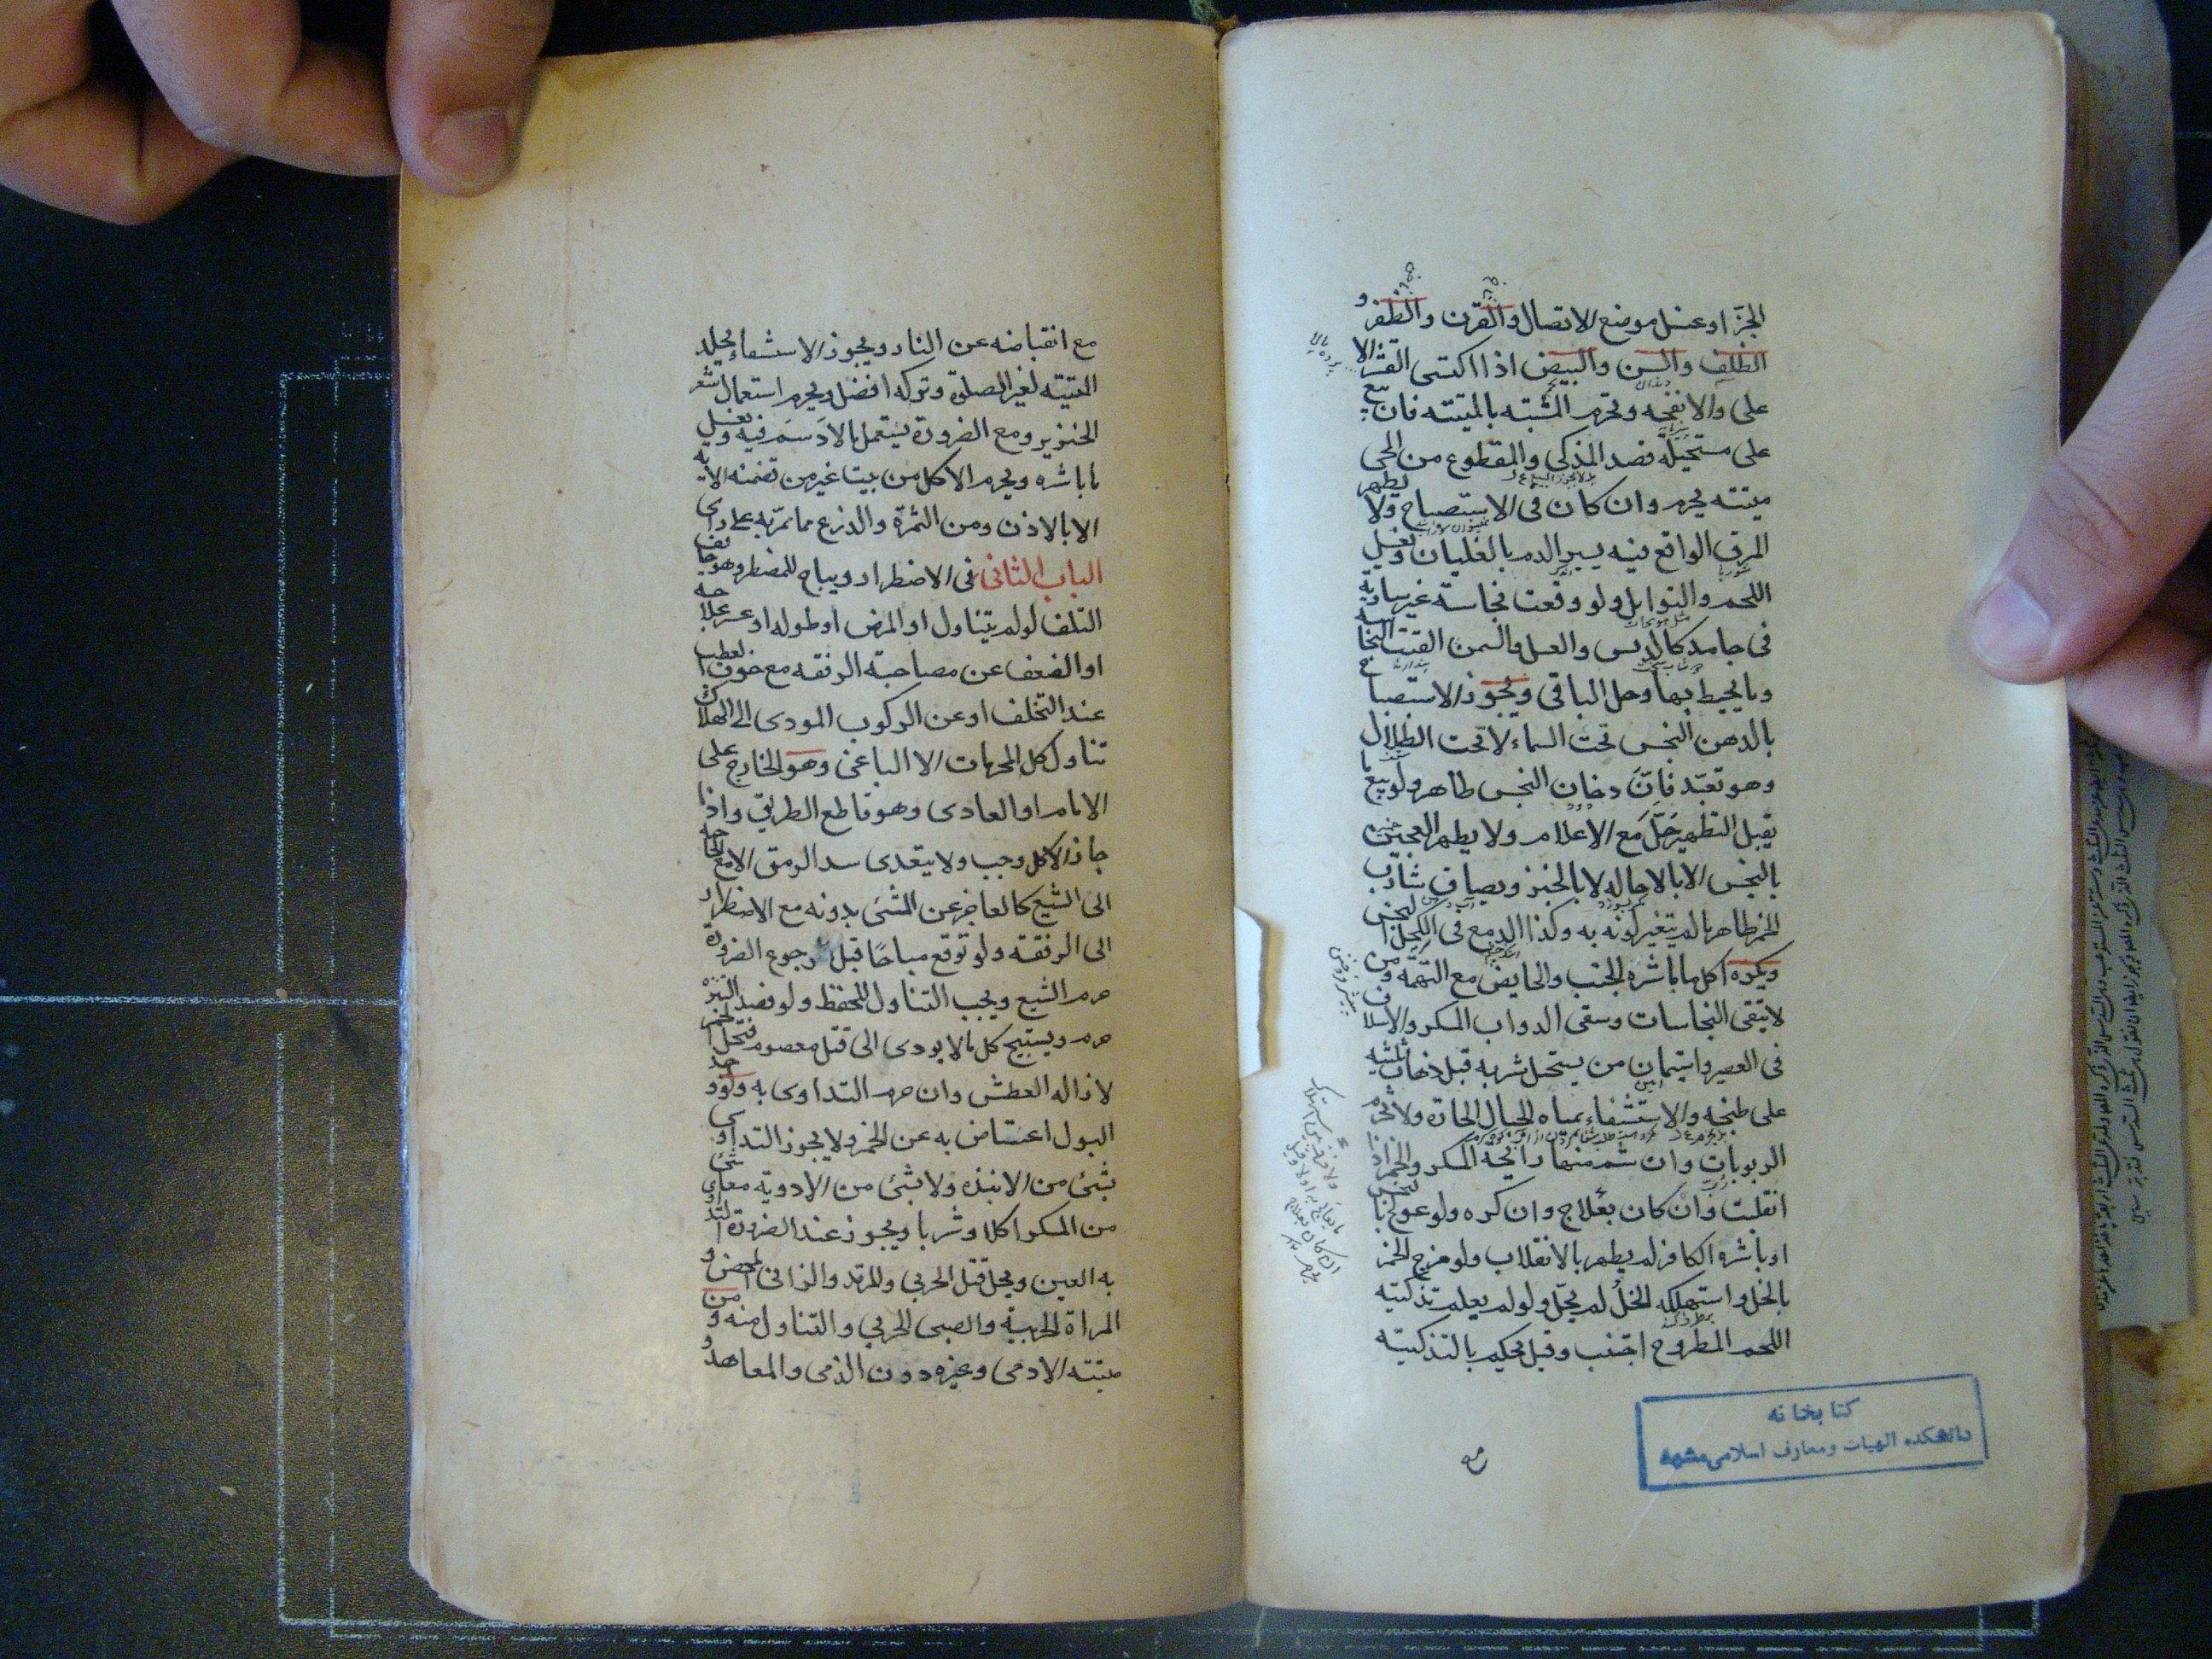 الجزّ او غسل موضع الاتصال والقرن والظفر و
الظلف والسن والبيض اذا اكتسى القشر الا
على والانفحه وتحرم المشتبه بالميتته فان بيع
على مستحيله قصد المذكى والمقطوع من الحى
ميتته يحرم وان كان فى الاستصباح ولا يطهر
المرق الواقع فيه يسير الدم بالغليان ويغسل
اللحم والتوابل ولو وقعت نجاسة غير سارية
فى جامد كالدبس والعسل والسمن القيت النجاسه
وما يحيط بها وحل الباقى ويجوز الاستصباح
بالدهن النجس تحت السماء لا تحت الظلال
وهو تعبّد فانّ دخان النجس طاهر ولو بيع ما
يقبل التطهير حلّ مع الاعلام ولا يطهر العجين
بالنجس الا بالاحاله لا بالخبز وبصاق شارب
الخمر طاهر ما لم يتغير لونه به وكذا الدمع فى الكحل النجس
ويكره اكل ما باشره الجنب والحايض مع التهمة ومن
لا يتقى النجاسات وسقى الدواب المسكر والاسلاف
فى العصير وايتمان من يستحل شربه قبل ذهاب ثلثيه
على طبخه والاستشفاء بمياه الجبال الحارة ولا تحرم
الربوبات وان شم منها رايحة المسكر والخمر اذا
انقلبت وان كان بعلاج وان كره ولو عولج بنجس
او باشره الكافر لم يطهر بالانقلاب ولو مزج الخمر
بالخل واستهلكه الخل لم يحل ولو لم يعلم تذكيته
اللحم المطروح اجتنب وقيل يحكم بالتذكيته
كتابخانه
دانشكده الهيات ومعارف اسلامى مشهد
مع انقباضه عن النار ويجوز الاستشفاء بجلد
الميتته لغير الصلوة وتركه افضل ويحرم استعمال شعر
الخنزير ومع الضرورة يستعمل ما لا دسم فيه ويغسل
ما باشره ويحرم الاكل من بيت غير من تضمنه الايه
الا بالاذن ومن الثمرة والزرع مما تمرّ به على راى
الباب الثانى فى الاضطرار ويباح للمضطر وهو خايف
التلف لو لم يتناول او المرض او طوله او عسر علاجه
او الضعف عن مصاحبة الرفقه مع خوف العطب
عند التخلف او عن الركوب المودى الى الهلاك
تناول كل المحرمات الا الباغى وهو الخارج على
الامام او العادى وهو قاطع الطريق واذا
جاز الاكل وجب ولا يتعدى سد الرمق الا مع الحاجه
الى الشبع كالعاجز عن المشى بدونه مع الاضطرار
الى الرفقته ولو توقع مباحًا قبل رجوع الضرورة
حرم الشبع ويجب التناول للحفظ ولو قصد التنزه
حرم ويستبيح كل ما لا يودى الى قتل معصوم فتحل الخمر
لازاله العطش وان حرم التداوى به ولو وجد
البول اعتاض به عن الخمر ولا يجوز التداوى
بشئ من الانبذه ولا بشئ من الادوية معها شئ
من المسكر اكلا وشربا ويجوز عند الضرورة التداوى
به العين ويحل قتل الحربي والمرتد والزانى المحصن و
المراة الحربية والصبى الحربي والتناول منه ومن
ميتته الادمى وغيره دون الذمى والمعاهد و